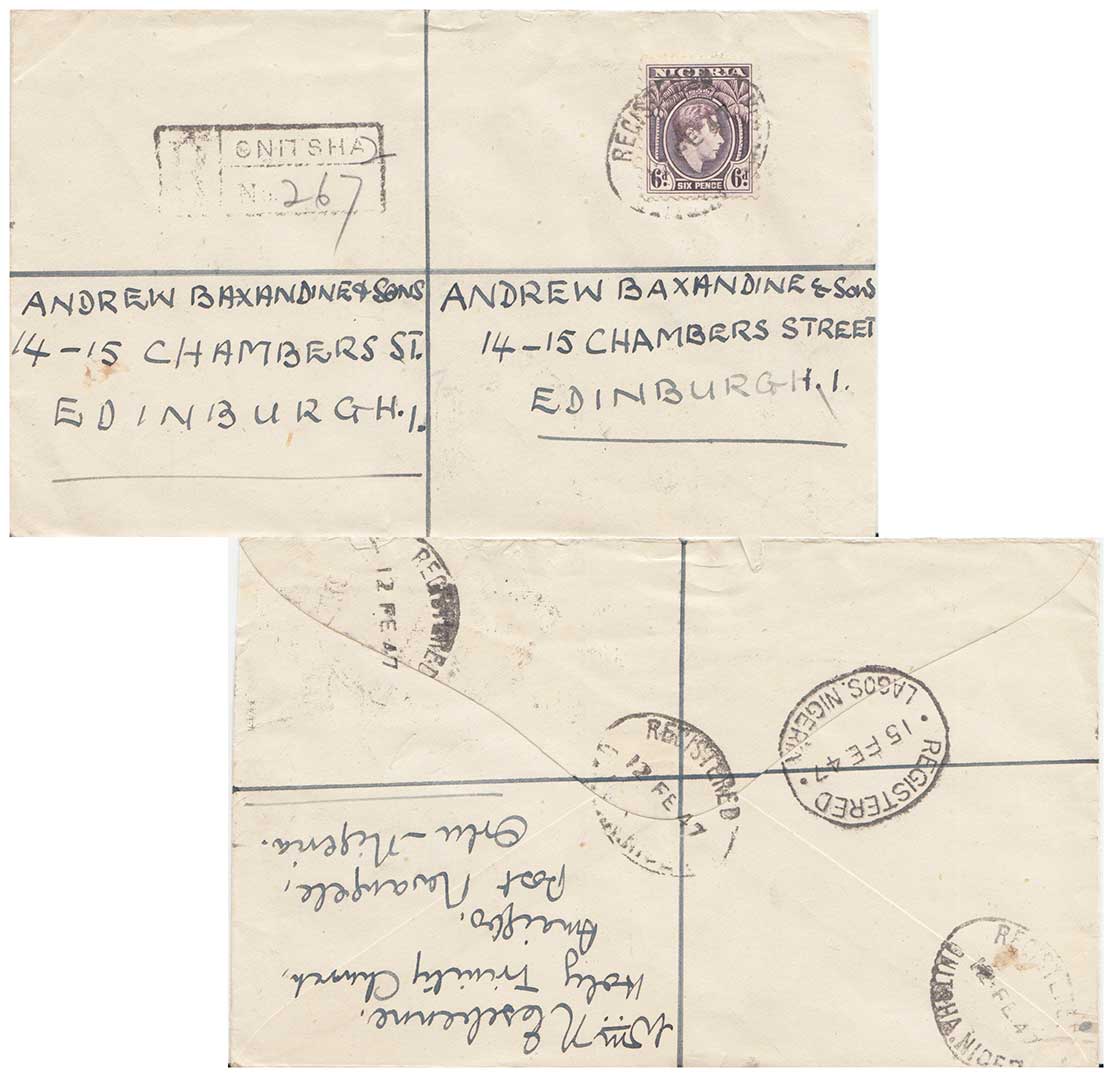 NIGERIA
6d SIX PENCE 6d
ONITSHA
No. 267
ANDREW BAXANDINE & SONS
14-15 CHAMBERS ST.
EDINBURGH.1.
ANDREW BAXANDINE & SONS
14-15 CHAMBERS STREET
EDINBURGH.1.
REGISTERED
12 FE 47
REGISTERED
12 FE 47
REGISTERED
15 FE 47
LAGOS. NIGERIA
REGISTERED
12 FE 47
ONITSHA. NIGER
Wm N
Holy Trinity Church,
Post
Orlu - Nigeria.